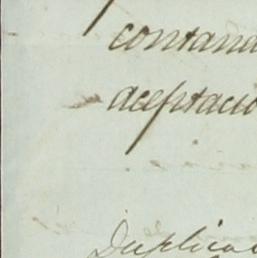 contand
aceptacio
Duplica